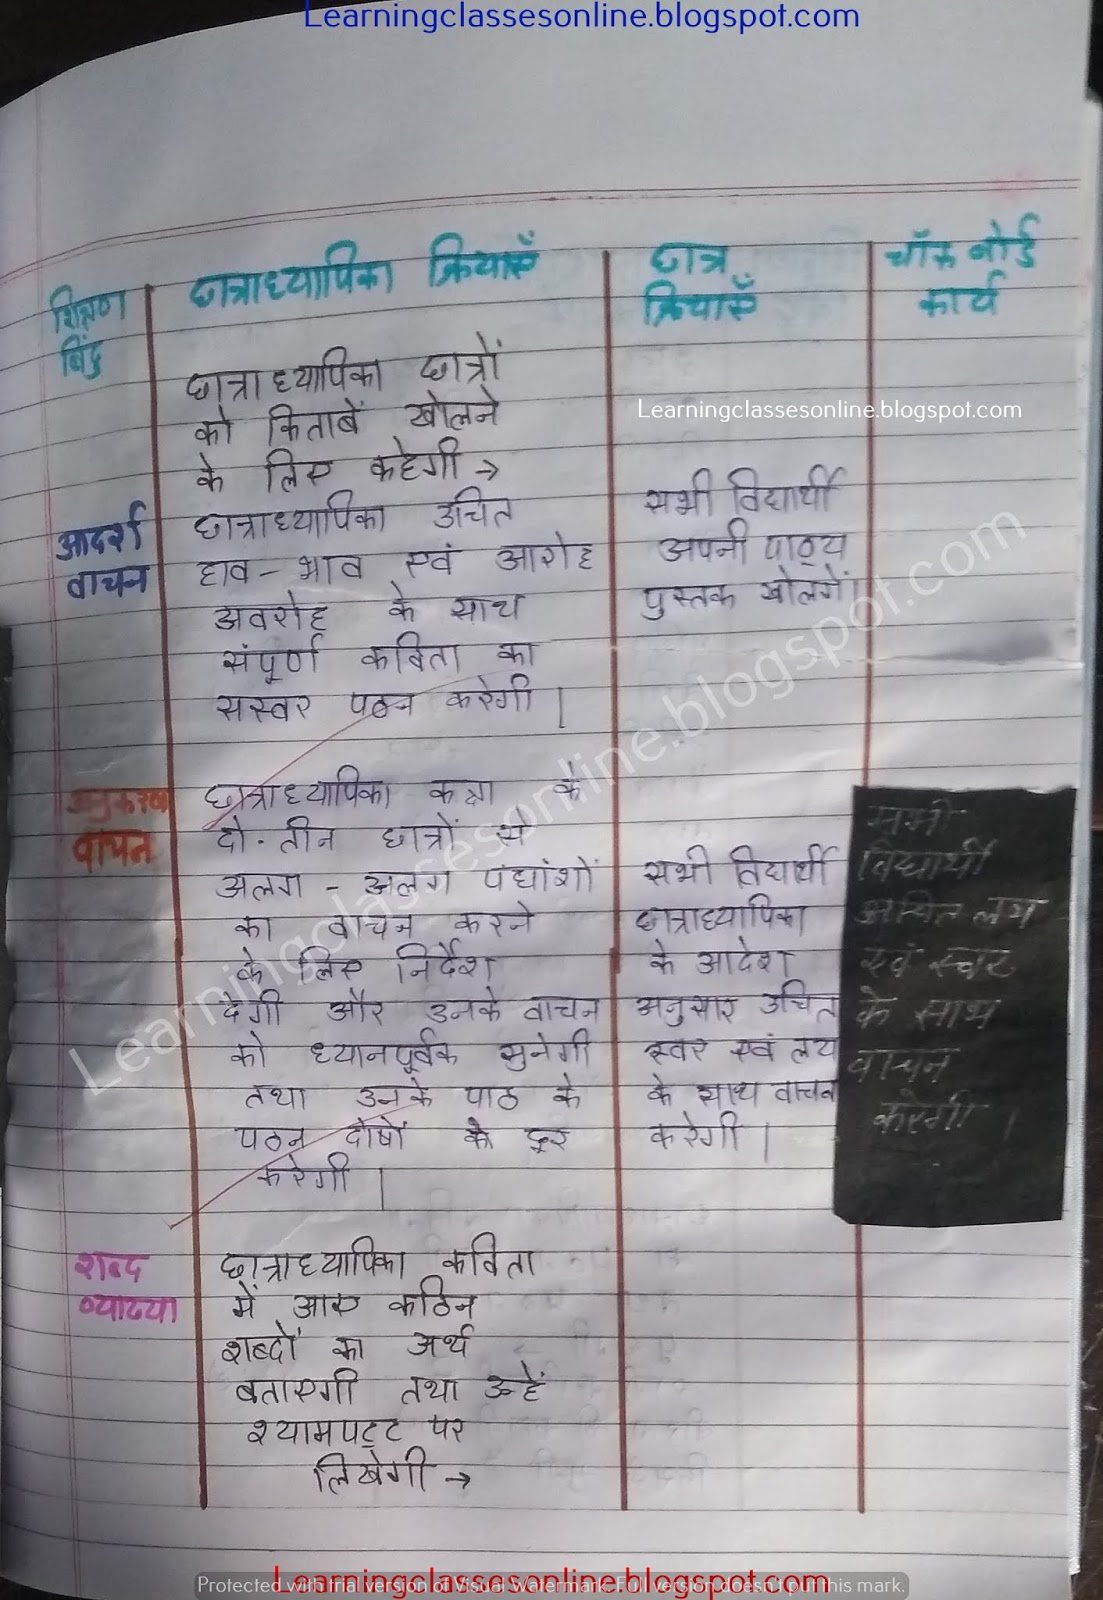 Learningclassesonline.blogspot.com
शिक्षण
बिंदु
छात्राध्यापिका क्रियाएँ
छात्र
क्रियाएँ
चॉक बोर्ड
कार्य
छात्राध्यापिका छात्रों
को किताबें खोलने
के लिए कहेगी →
Learningclassesonline.blogspot.com
आदर्श
वाचन
छात्राध्यापिका उचित
हाव - भाव एवं आरोह
अवरोह के साथ
संपूर्ण कविता का
सस्वर पठन करेगी |
सभी विद्यार्थी
अपनी पाठ्य
पुस्तक खोलगें।
अनुकरण
वाचन
छात्राध्यापिका कक्षा के
दो - तीन छात्रों से
अलग - अलग पंद्यांशों
का वाचन करने
के लिए निर्देश
देगी और उनके वाचन
को ध्यानपूर्वक सुनेगी
तथा उनके पाठ के
पठन दोषों को दूर
करेगी |
सभी विद्यार्थी
छात्राध्यापिका
के आदेश
अनुसार उचित
स्वर एवं लय
के साथ वाचन
करेगी |
सभी
विद्यार्थी
लय
एवं स्वर
के साथ
वाचन
करेगी |
शब्द
व्याख्या
छात्राध्यापिका कविता
में आए कठिन
शब्दों का अर्थ
बताएगी तथा उन्हें
श्यामपट्ट पर
लिखेगी →
Learningclassesonline.blogspot.com
Protected with trial version of Visual Watermark. Full version doesn't put this mark.
Learningclassesonline.blogspot.com